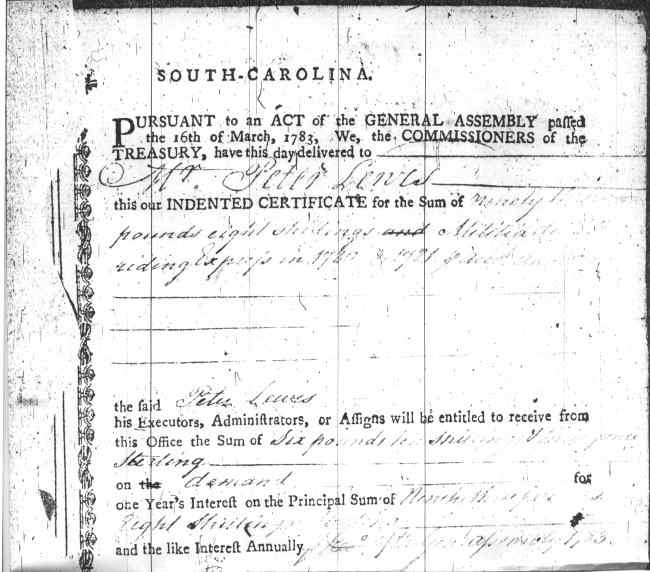 SOUTH-CAROLINA.
PURSUANT to an ACT of the GENERAL ASSEMBLY passed
the 16th of March, 1783, We, the COMMISSIONERS of the
TREASURY, have this day delivered to
Mr. Peter Lewes
this our INDENTED CERTIFICATE for the Sum of ninety
pounds eight shillings and Militia
riding Express in 1780 & 1781
the said Peter Lewes
his Executors, Administrators, or Assigns will be entitled to receive from
this Office the Sum of Six pounds
Sterling
on the demand for
one Year's Interest on the Principal Sum of
Eight Shillings
and the like Interest Annually